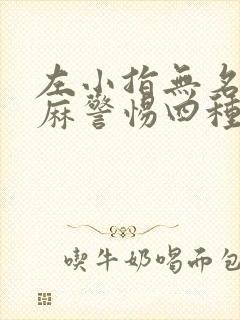 左小指無名
麻警惕四種
喫牛奶喝而包